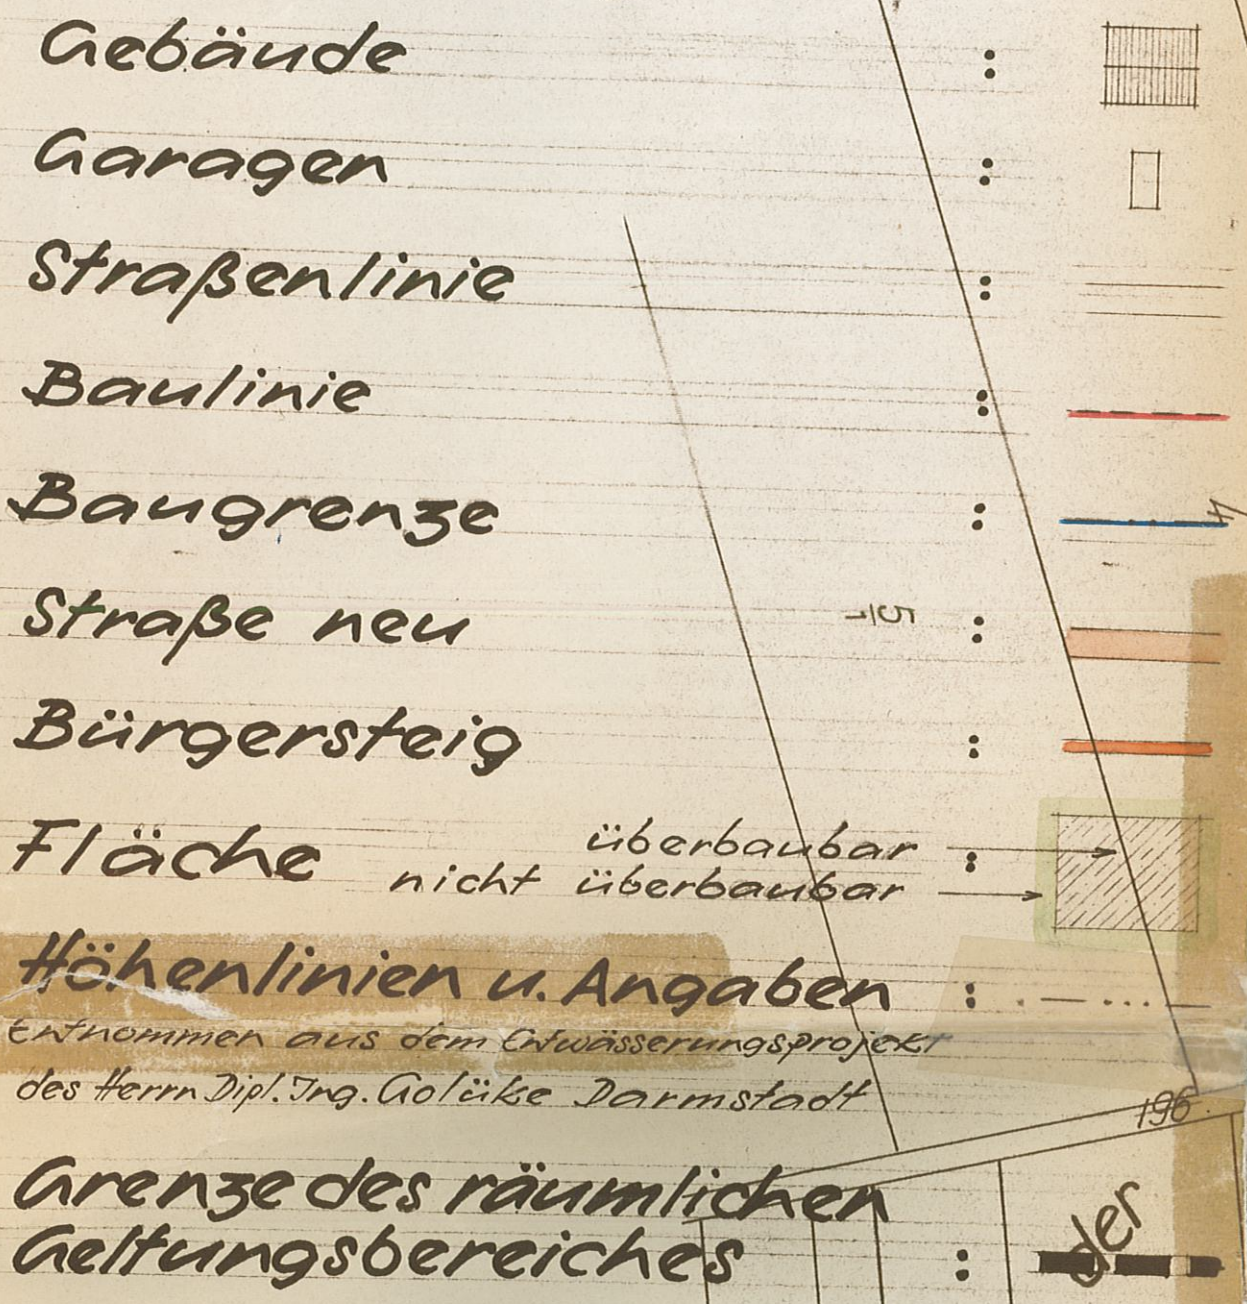 Gebäude :
Garagen :
Straßenlinie :
Baulinie :
Baugrenze :
Straße neu :
Bürgersteig :
Fläche überbaubar :
nicht überbaubar
Höhenlinien u. Angaben :
Entnommen aus dem Entwässerungsprojekt
des Herrn Dipl. Ing. Golüke Darmstadt
196
Grenze des räumlichen
Geltungsbereiches :
der